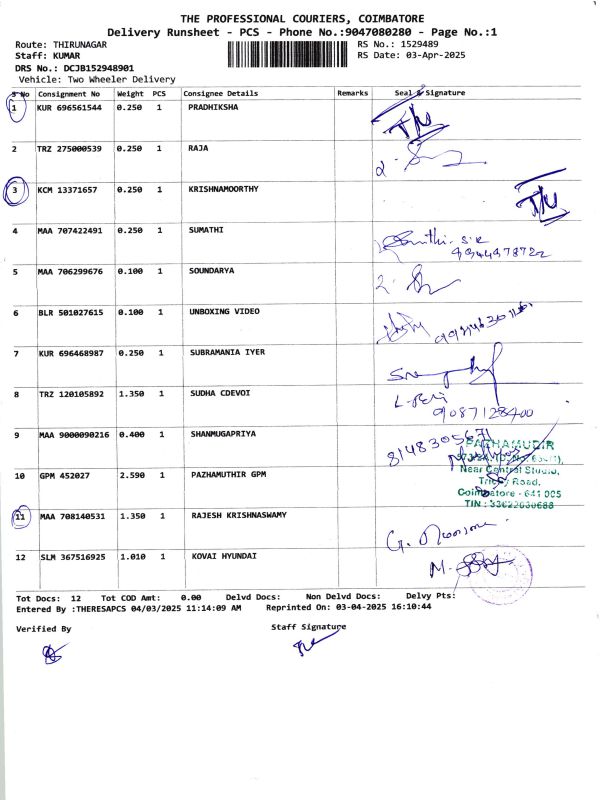 THE PROFESSIONAL COURIERS, COIMBATORE
Delivery Runsheet - PCS - Phone No.:9047080280 - Page No.:1
Route: THIRUNAGAR RS No.: 1529489
Staff: KUMAR RS Date: 03-Apr-2025
DRS No.: DCJB152948901
Vehicle: Two Wheeler Delivery
S No Consignment No Weight PCS Consignee Details Remarks Seal & Signature
1 KUR 696561544 0.250 1 PRADHIKSHA
2 TRZ 275000539 0.250 1 RAJA
3 KCM 13371657 0.250 1 KRISHNAMOORTHY
4 MAA 707422491 0.250 1 SUMATHI
9944978722
5 MAA 706299676 0.100 1 SOUNDARYA
6 BLR 501027615 0.100 1 UNBOXING VIDEO
7 KUR 696468987 0.250 1 SUBRAMANIA IYER
8 TRZ 120105892 1.350 1 SUDHA CDEVOI
9087128400
9 MAA 9000090216 0.400 1 SHANMUGAPRIYA
8148305671
PAZHAMUDIR
Near Central Studio,
Trichy Road,
Coimbatore - 641 005
TIN : 33622030688
10 GPM 452027 2.590 1 PAZHAMUTHIR GPM
11 MAA 708140531 1.350 1 RAJESH KRISHNASWAMY
12 SLM 367516925 1.010 1 KOVAI HYUNDAI
Tot Docs: 12 Tot COD Amt: 0.00 Delvd Docs: Non Delvd Docs: Delvy Pts:
Entered By :THERESAPCS 04/03/2025 11:14:09 AM Reprinted On: 03-04-2025 16:10:44
Verified By Staff Signature